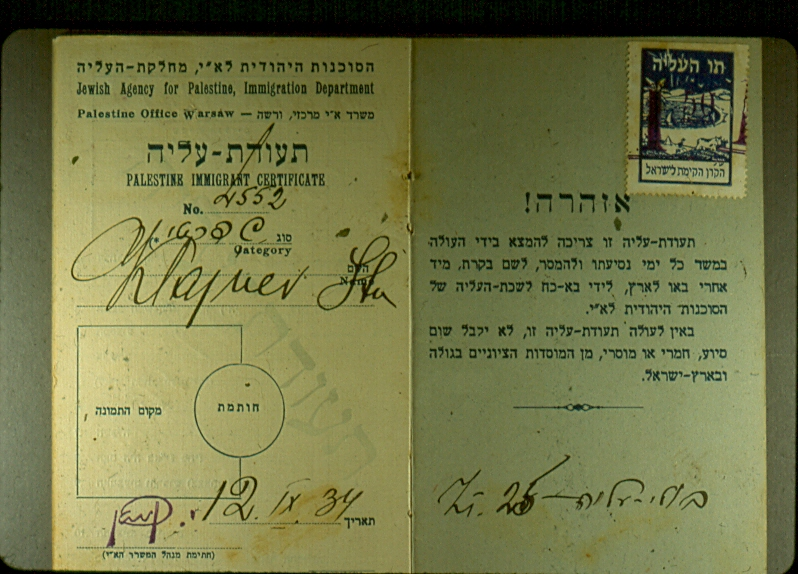 הסוכנות היהודית לא״י, מחלקת-העליה
Jewish Agency for Palestine, Immigration Department
Palestine Office Warsaw — משרד א״י מרכזי, ורשה
תעודת-עליה
PALESTINE IMMIGRANT CERTIFICATE
No. 4552
סוג
Category
השם
Name
Klajner
מקום התמונה
חותמת
תאריך 12. IX 34
(חתימת מנהל המשרד הא״י)
תו העליה
הקרן הקימת לישראל
אזהרה!
תעודת-עליה זו צריכה להמצא בידי העולה
במשך כל ימי נסיעתו ולהמסר, לשם בקרת, מיד
אחרי באו לארץ, לידי בא-כח לשכת-העליה של
הסוכנות היהודית לא״י.
באין לעולה תעודת-עליה זו, לא יקבל שום
סיוע, חמרי או מוסרי, מן המוסדות הציוניים בגולה
ובארץ-ישראל.
בולי-עליה — 25 .Zł